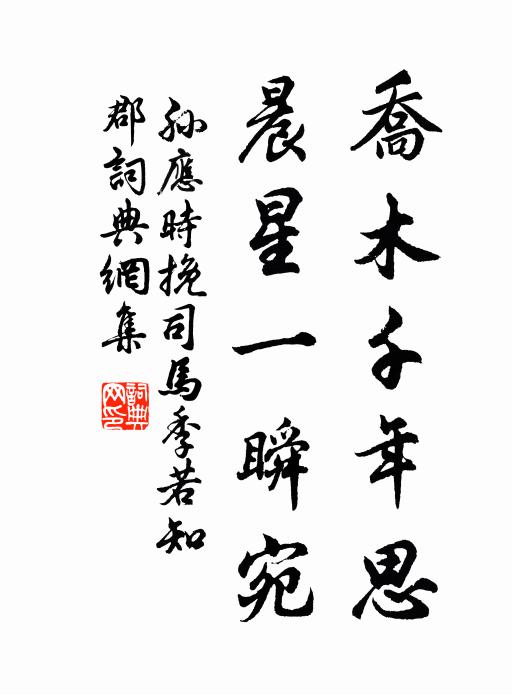 喬木千年思
晨星一瞬宛
孫應時挽司馬季若知
郡詞典網集
詞典
网印